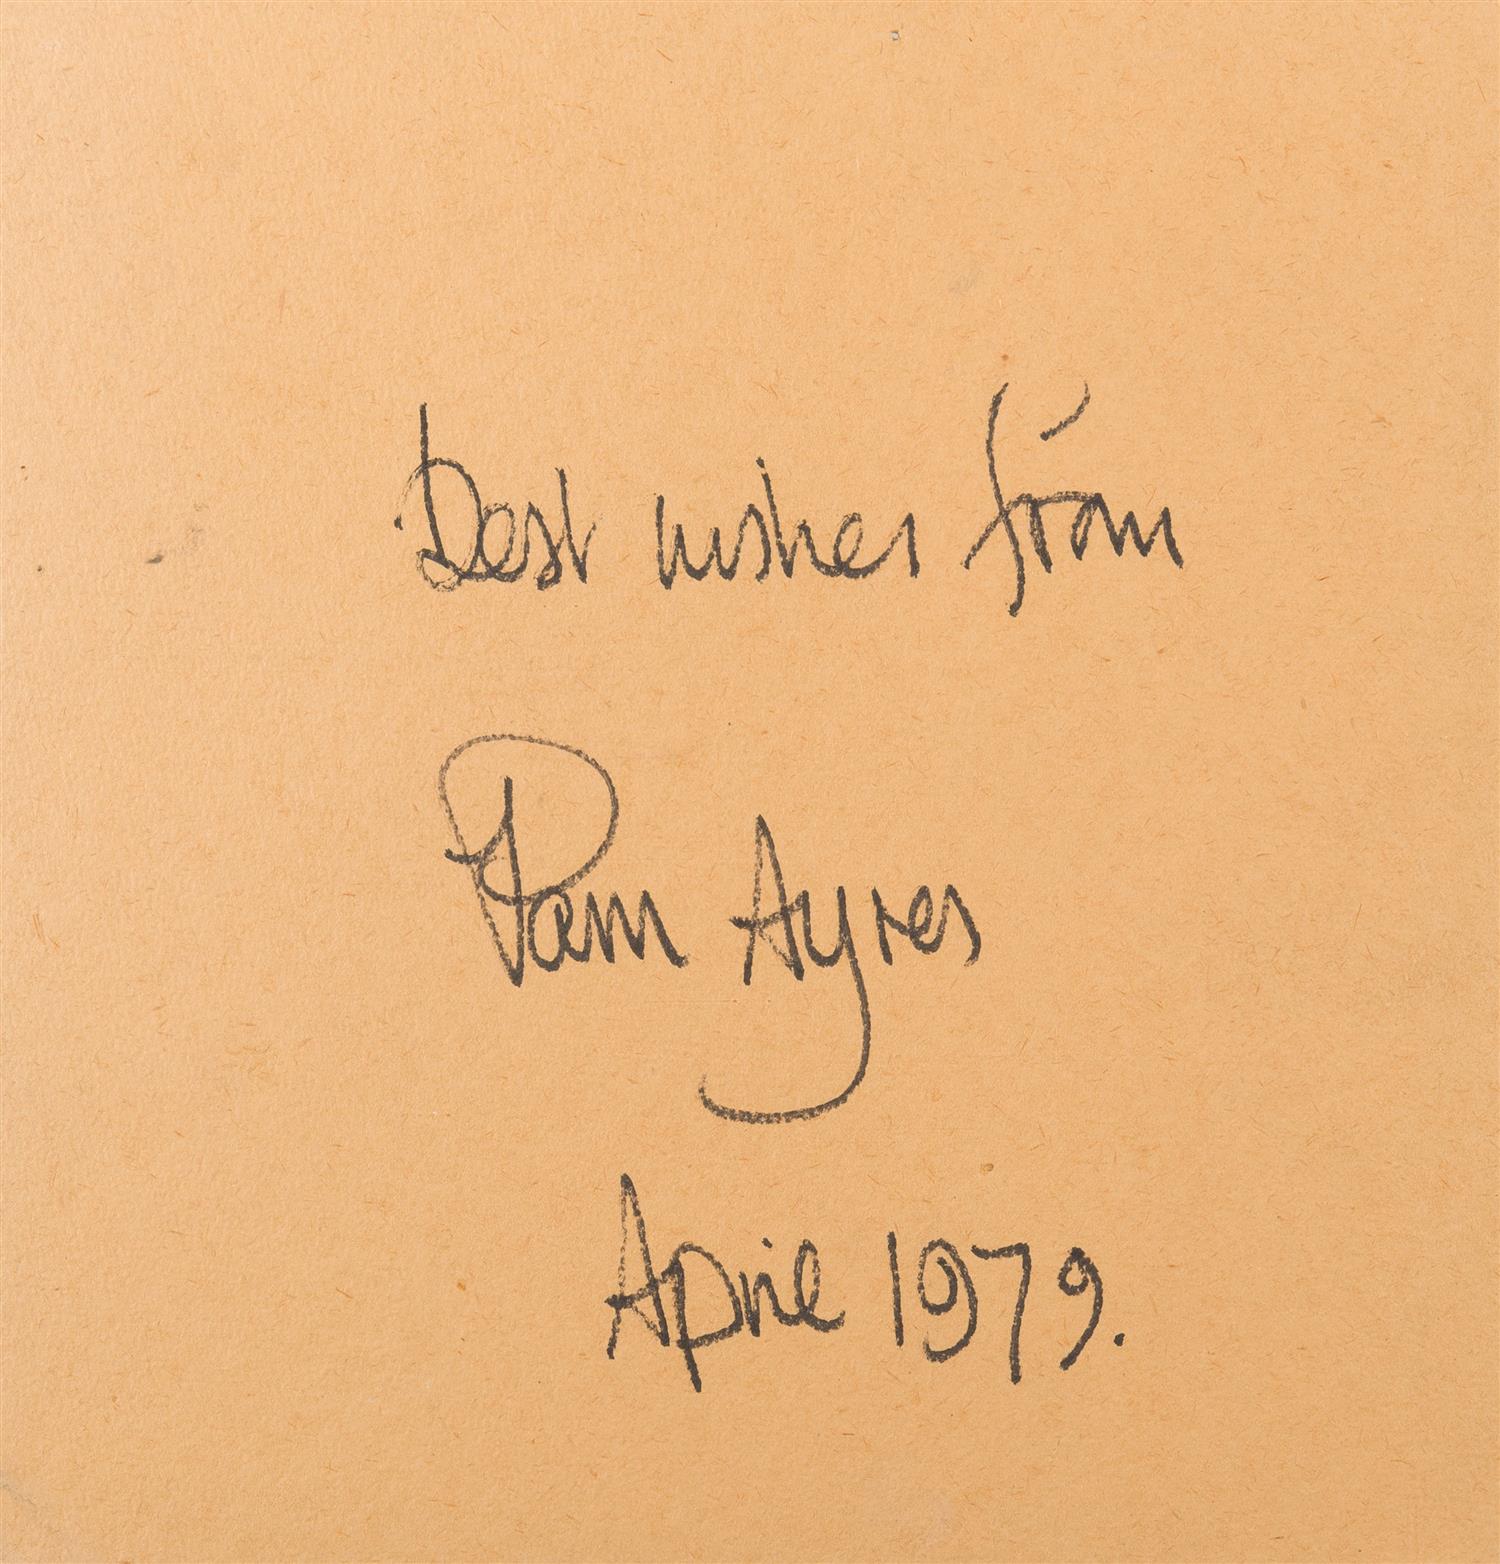 Best wishes from
Pam Ayres
April 1979.